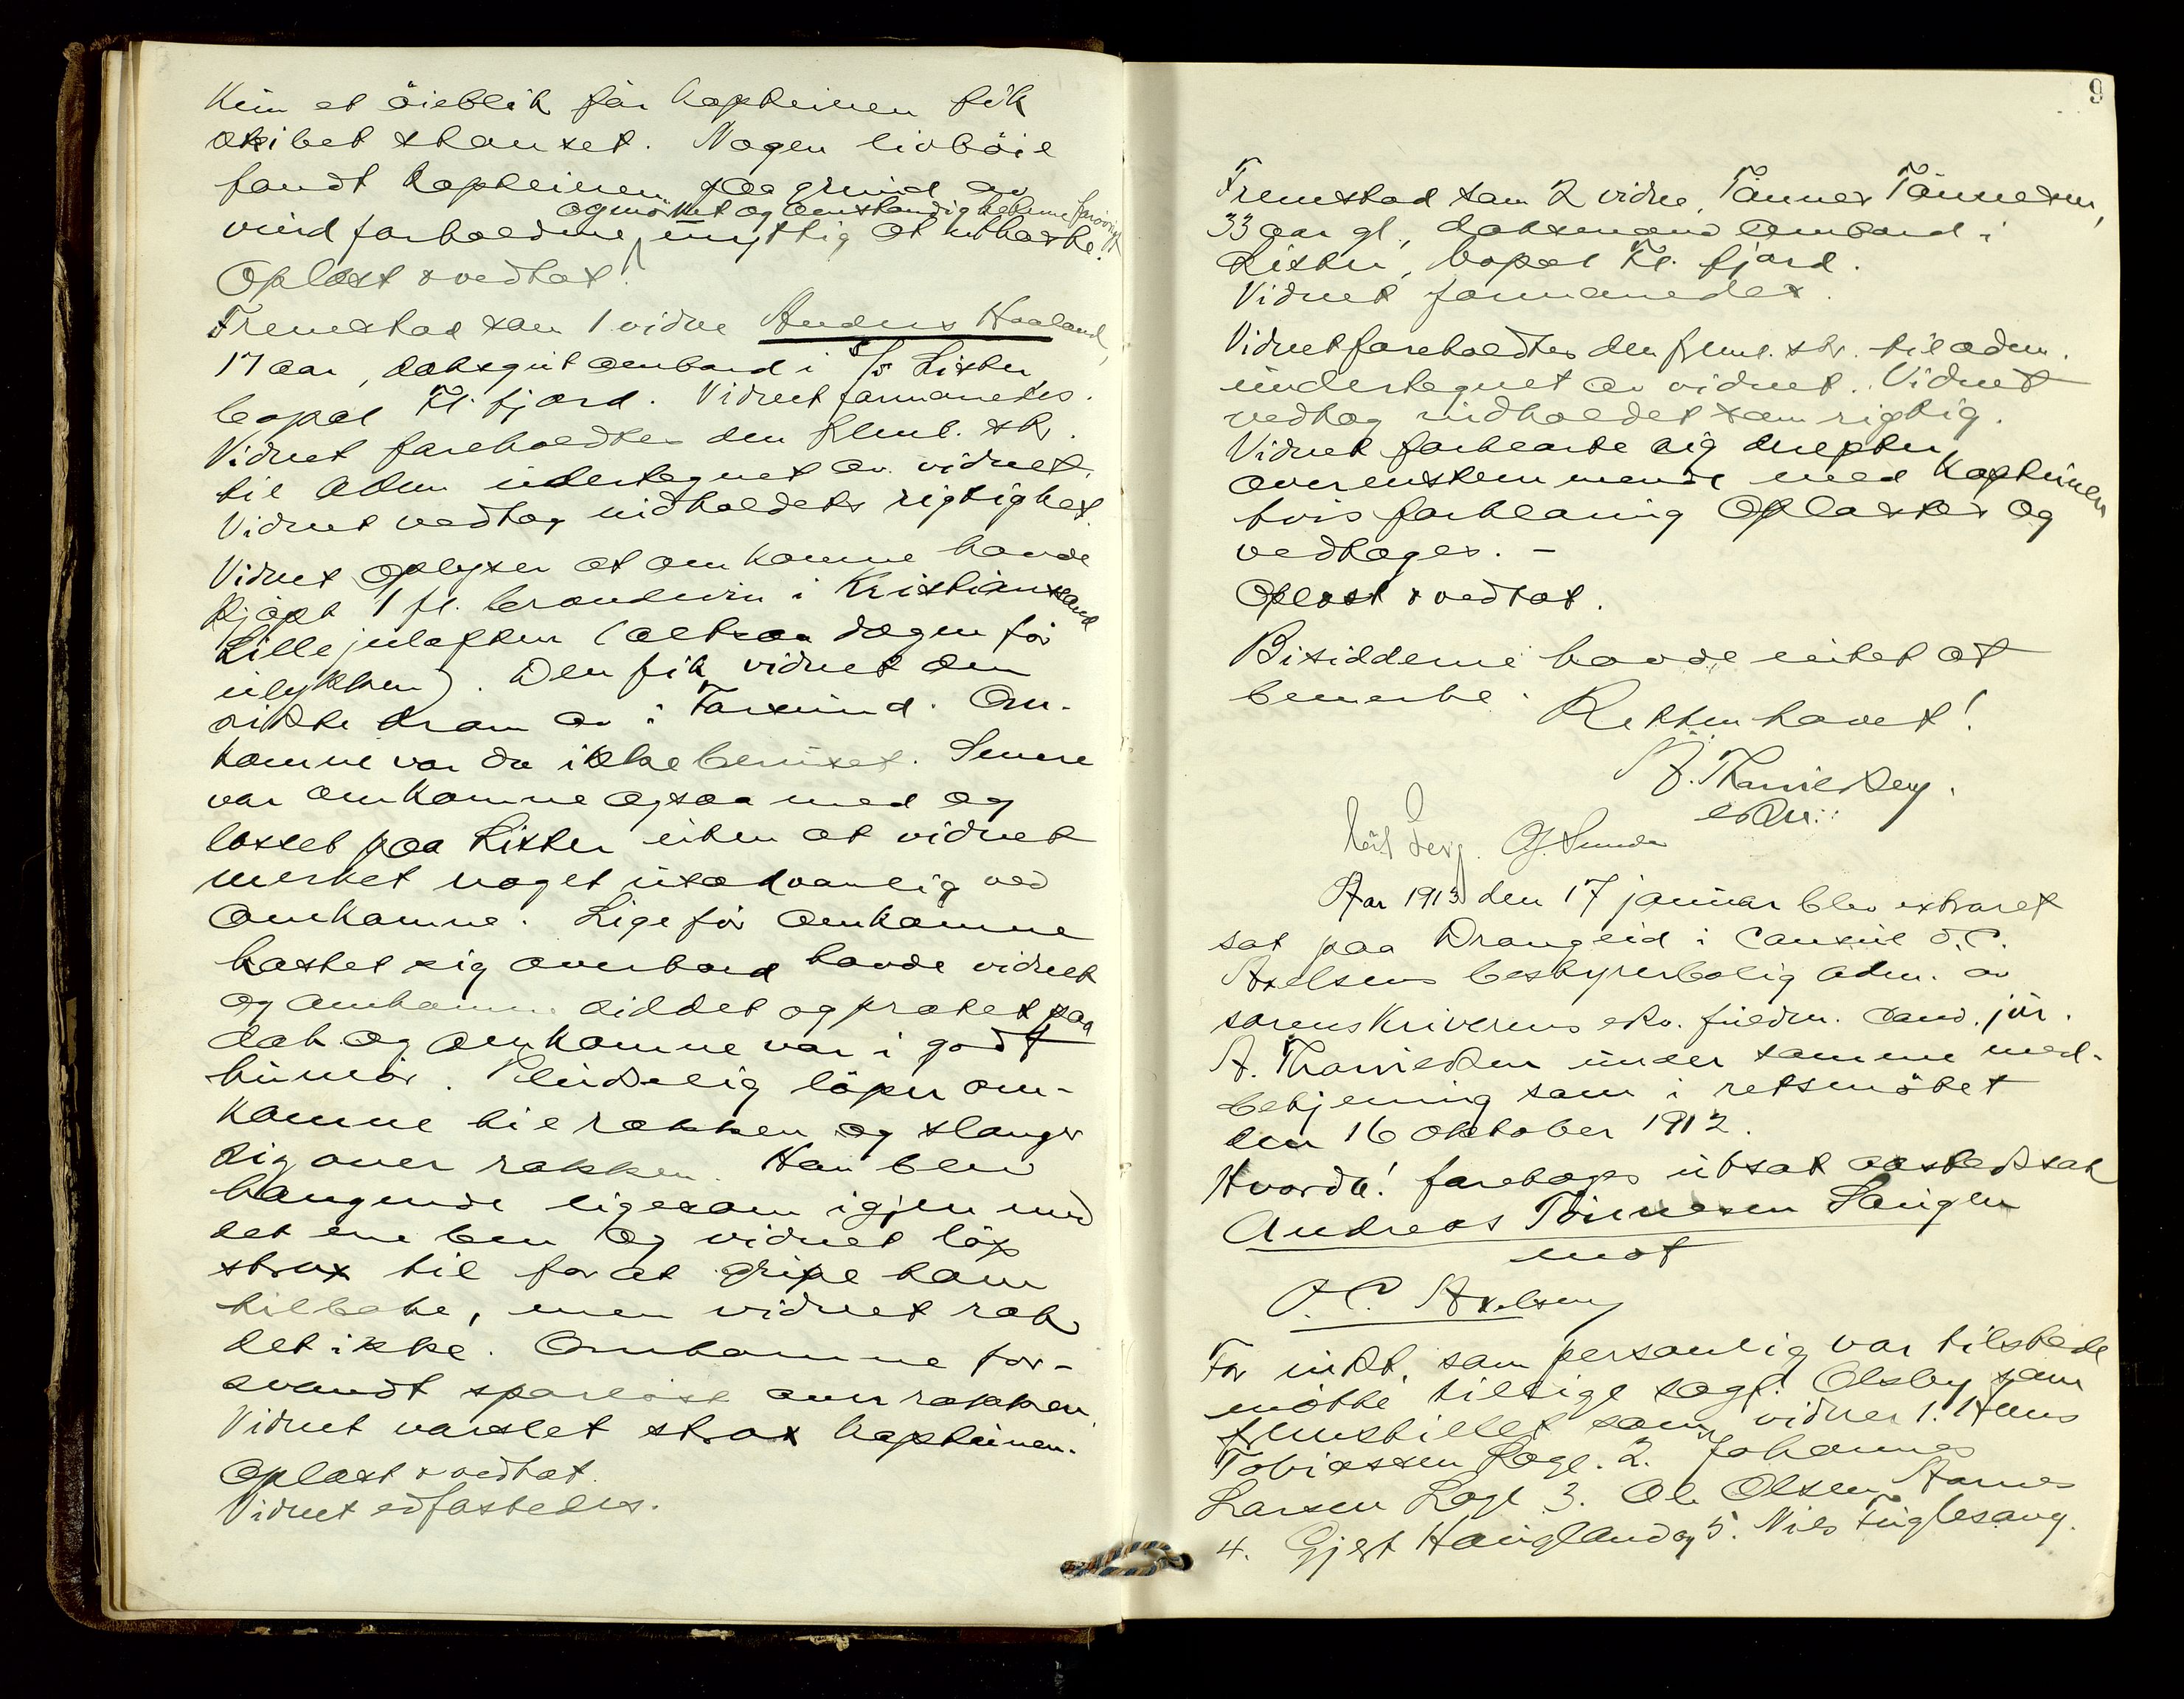 kun et öieblik för kapteinen fik
skibet stanset. Nogen livböie
fandt kapteinen paa grund av
vindforholdene og mörket og omstændighetene forövrigt unyttig at utkaste.
Oplæst & vedtat.
Fremstod som 1 vidne Anders Haaland,
17 aar, dæksgut ombord i S/S Lister
bopæl Fl. fjord. Vidnet formanedes.
Vidnet foreholdtes den freml. skr.
til adm. undertegnet av vidnet.
Vidnet vedtog indholdets rigtighet.
Vidnet oplyser at omkomne havde
kjöpt 1 fl. brændevin i Kristianssand
Lille julaften (altsaa dagen för
ulykken). Den fik vidnet den
sidste dram av i Farsund. Om-
komne var da ikke beruset. Senere
var omkomne ogsaa med og
losset paa Lister uten at vidnet
merket noget usædvanlig ved
omkomne. Lige för omkomne
kastet sig overbord havde vidnet
og omkomne siddet og pratet paa
dæk og omkomne var i godt
humör. Pludselig löper om-
komne til rækken og slænger
sig over rækken. Han blev
hængende ligesom igjen med
det ene ben og vidnet löp
strax til for at gripe ham
tilbake, men vidnet rak
det ikke. Omkomne for-
svandt sporlöst over rækken.
Vidnet varslet strax kapteinen.
Oplæst & vedtat.
Vidnet edfæstedes.
9
Fremstod som 2 vidne, Tönnes Tönnesen,
33 aar gl., dæksmand ombord i
Lister, bopæl Fl. fjord.
Vidnet formanedes.
Vidnet foreholdtes den freml. skr. til adm.
undertegnet av vidnet. Vidnet
vedtog indholdet som rigtig.
Vidnet forklarte sig derefter
overenstemmende med kapteinen
hvis forklaring oplæstes og
vedtages. -
Oplæst & vedtat.
Bisidderne havde intet at
bemerke.
Retten hævet!
A. Thorvildsen.
edv.
O. Sunde
Aar 1913 den 17 januar blev extraret
sat paa Drangeid i Consul O. C.
Axelsens bestyrerbolig adm. av
sorenskriverens edv. fuldm. cand. jur.
A. Thorvildsen under samme med-
betjening som i retsmötet
den 16 oktober 1912.
Hvorda! foretoges utsat aastedssak
Andreas Tönnesen Laugen
mot
O. C. Axelsen
For indst. som personlig var tilstede
mötte tillige sagf. Olsby som
fremstillet som vidner 1. Hans
Tobiassen Loge. 2. Johannes
Larsen Loge 3. Ole Olsen Aamo
4. Gjert Haugland og 5. Nils Fuglesang.